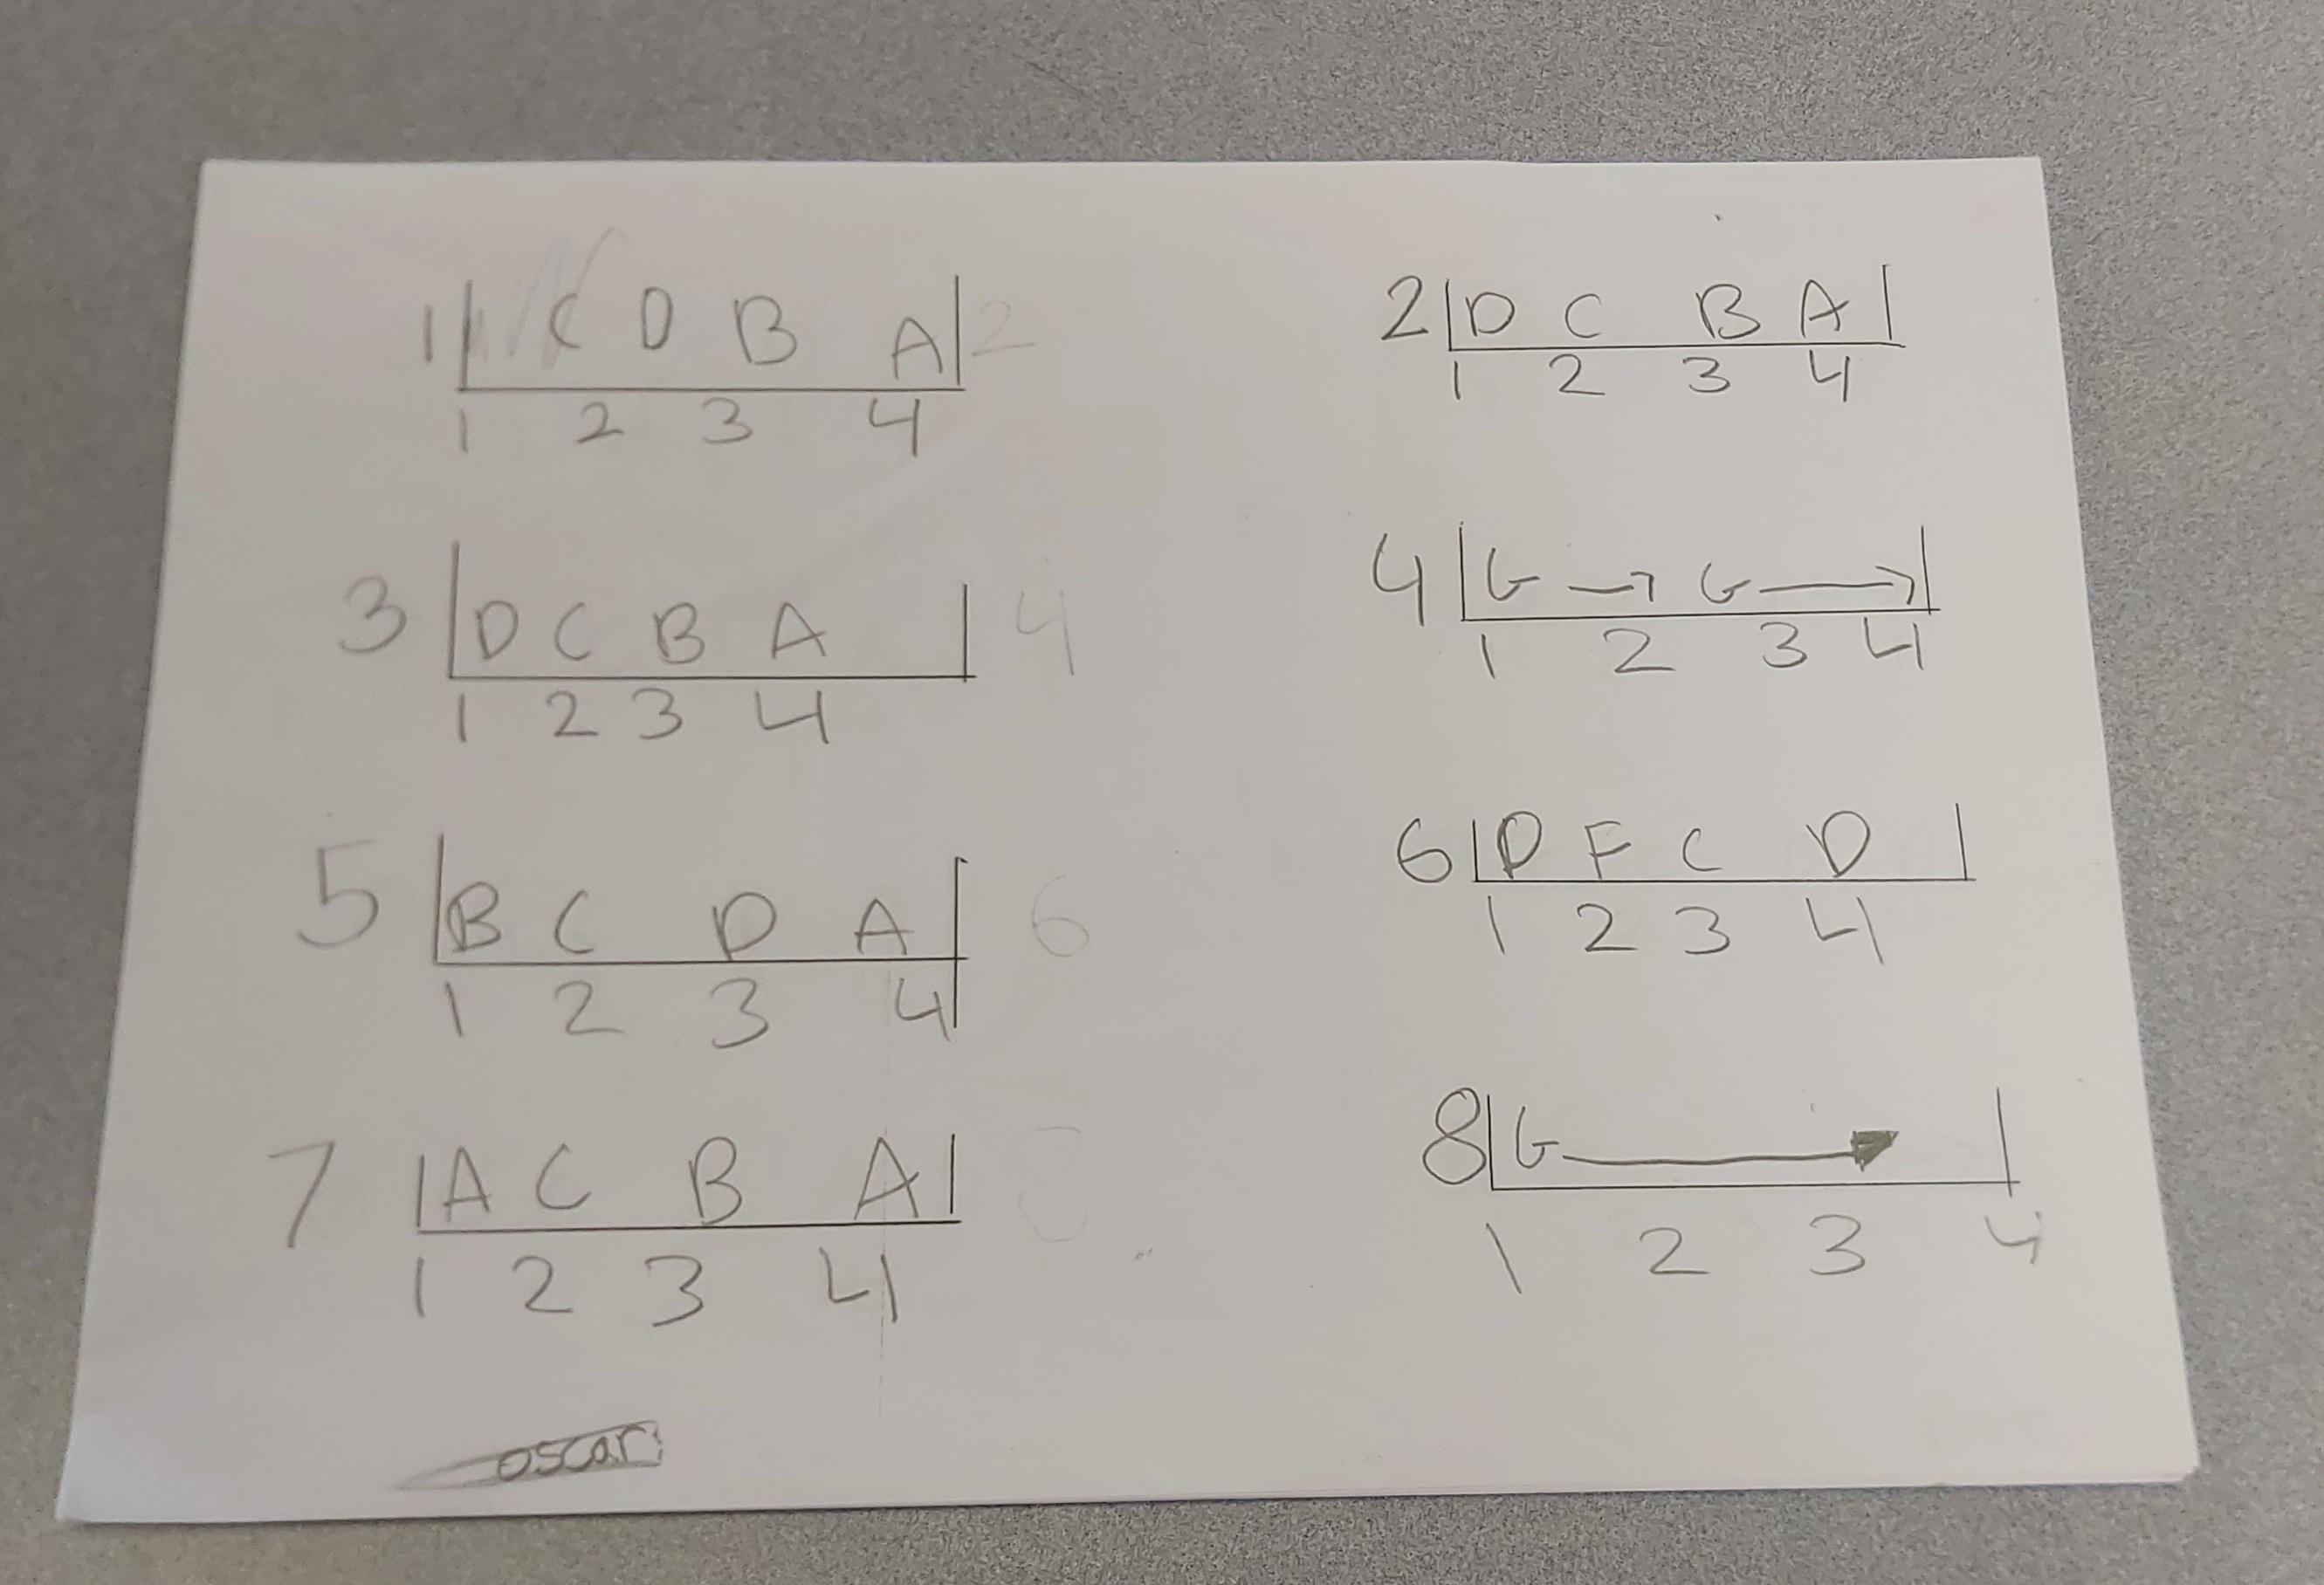 1 | C D B A | 2
1 2 3 4
2 | D C B A |
1 2 3 4
3 | D C B A | 4
1 2 3 4
4 | G → G → |
1 2 3 4
5 | B C D A | 6
1 2 3 4
6 | D F C D |
1 2 3 4
7 | A C B A | 8
1 2 3 4
8 | G → |
1 2 3 4
oscar